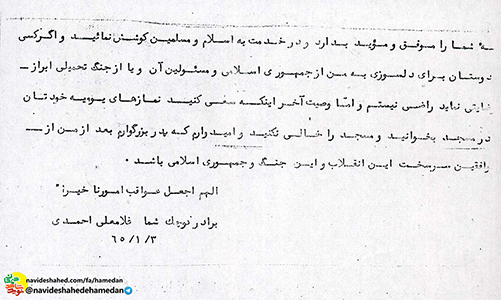 شما را موفق و مؤید بدارد و در خدمت به اسلام و مسلمین کوشش نمائید و اگر کسی
دوستان برای دلسوزی به من از جمهوری اسلامی و مسئولین آن و یا از جنگ تحمیلی ابراز
نماید راضی نیستم و امّا وصیت آخر اینکه سعی کنید نمازهای یومیه خودتان
در مسجد بخوانید و مسجد را خالی نکنید و امیدوارم که پدر بزرگوارم بعد از من از
رافقین سرسخت این انقلاب و این جنگ و جمهوری اسلامی باشد.
الهم اجعل عواقب امورنا خیرا"
برادر کوچک شما غلامعلی احمدی
٦٥/١/٣
navideshahed.com/fa/hamedan
@navideshahedehamedan